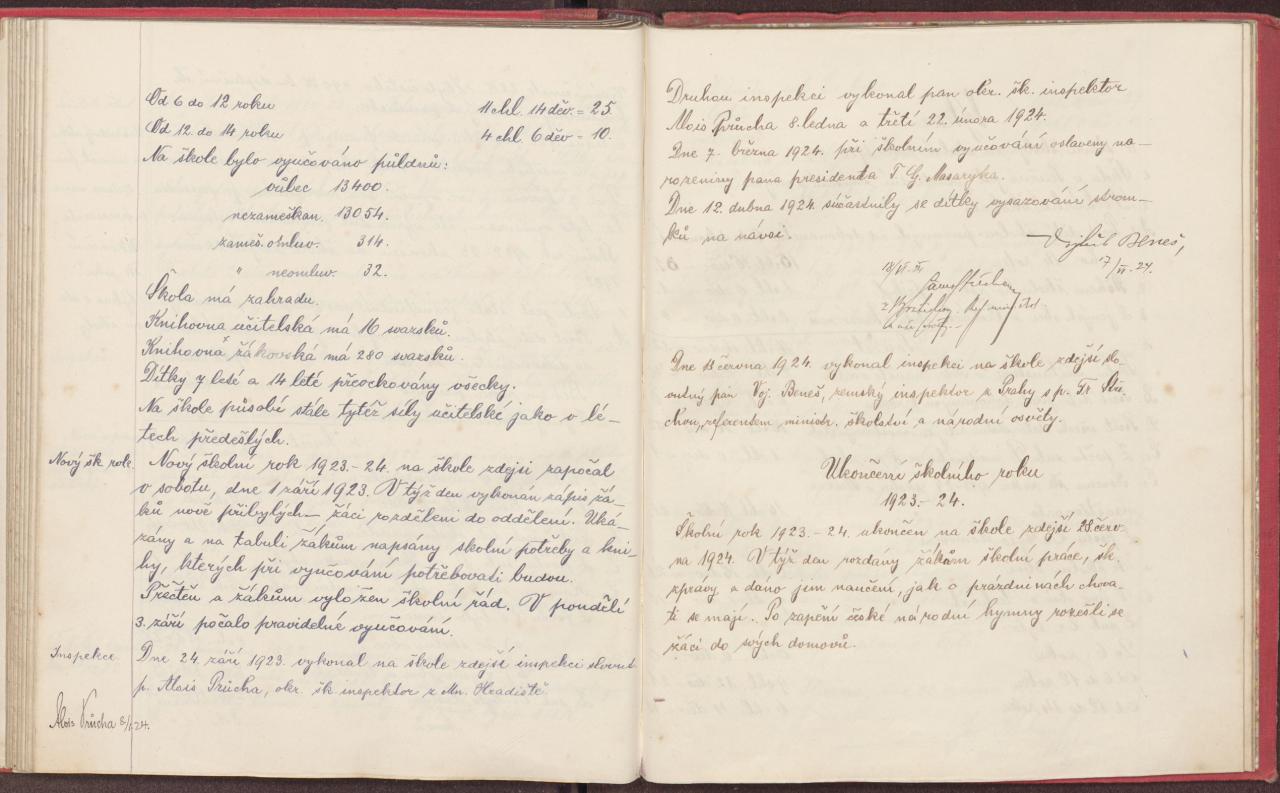 Od 6 do 12 roku 11 chl. 14 děv. = 25.
Od 12. do 14 roku 4 chl. 6 děv = 10.
Na škole bylo vyučováno půldnů:
vůbec 13400.
nezameškan. 13054.
zameš. omluv. 314.
" neomluv. 32.
Škola má zahradu.
Knihovna učitelská má 16 svazků.
Knihovna žákovská má 280 svazků.
Dítky 7 leté a 14 leté přeočkovány všecky.
Na škole působí stále tytéž síly učitelské jako v lé-
tech předešlých.
Nový šk. rok. Nový školní rok 1923.-24. na škole zdejší započal
v sobotu, dne 1 září 1923. V týž den vykonán zápis žá-
ků nově přibylých – žáci rozděleni do oddělení. Uká-
zány a na tabuli žákům napsány školní potřeby a kni-
hy, kterých při vyučování potřebovati budou.
Přečten a žákům vyložen školní řád. V pondělí
3. září počalo pravidelné vyučování.
Inspekce. Dne 24. září 1923. vykonal na škole zdejší inspekci slovut.
p. Alois Průcha, okr. šk. inspektor z Mn. Hradiště.
Alois Průcha 8/1.24.
Druhou inspekci vykonal pan okr. šk. inspektor
Alois Průcha 8. ledna a třetí 22. února 1924.
Dne 7. března 1924. při školním vyučování oslaveny na-
rozeniny pana presidenta T. G. Masaryka.
Dne 12. dubna 1924. súčastnily se dítky vysazování strom-
ků na návsi.
Vojtěch Beneš,
17/VI.24.
Dne 18 června 1924. vykonal inspekci na škole zdejší slo-
vutný pan Voj. Beneš, zemský inspektor z Prahy s p. Fr.
referentem ministr. školství a národní osvěty.
Ukončení školního roku
1923.-24.
Školní rok 1923.-24. ukončen na škole zdejší 28. červ-
na 1924. V týž den rozdány žákům školní práce, šk.
zprávy a dáno jim naučení, jak o prázdninách chova-
ti se mají. Po zapění české národní hymny rozešli se
žáci do svých domovů.